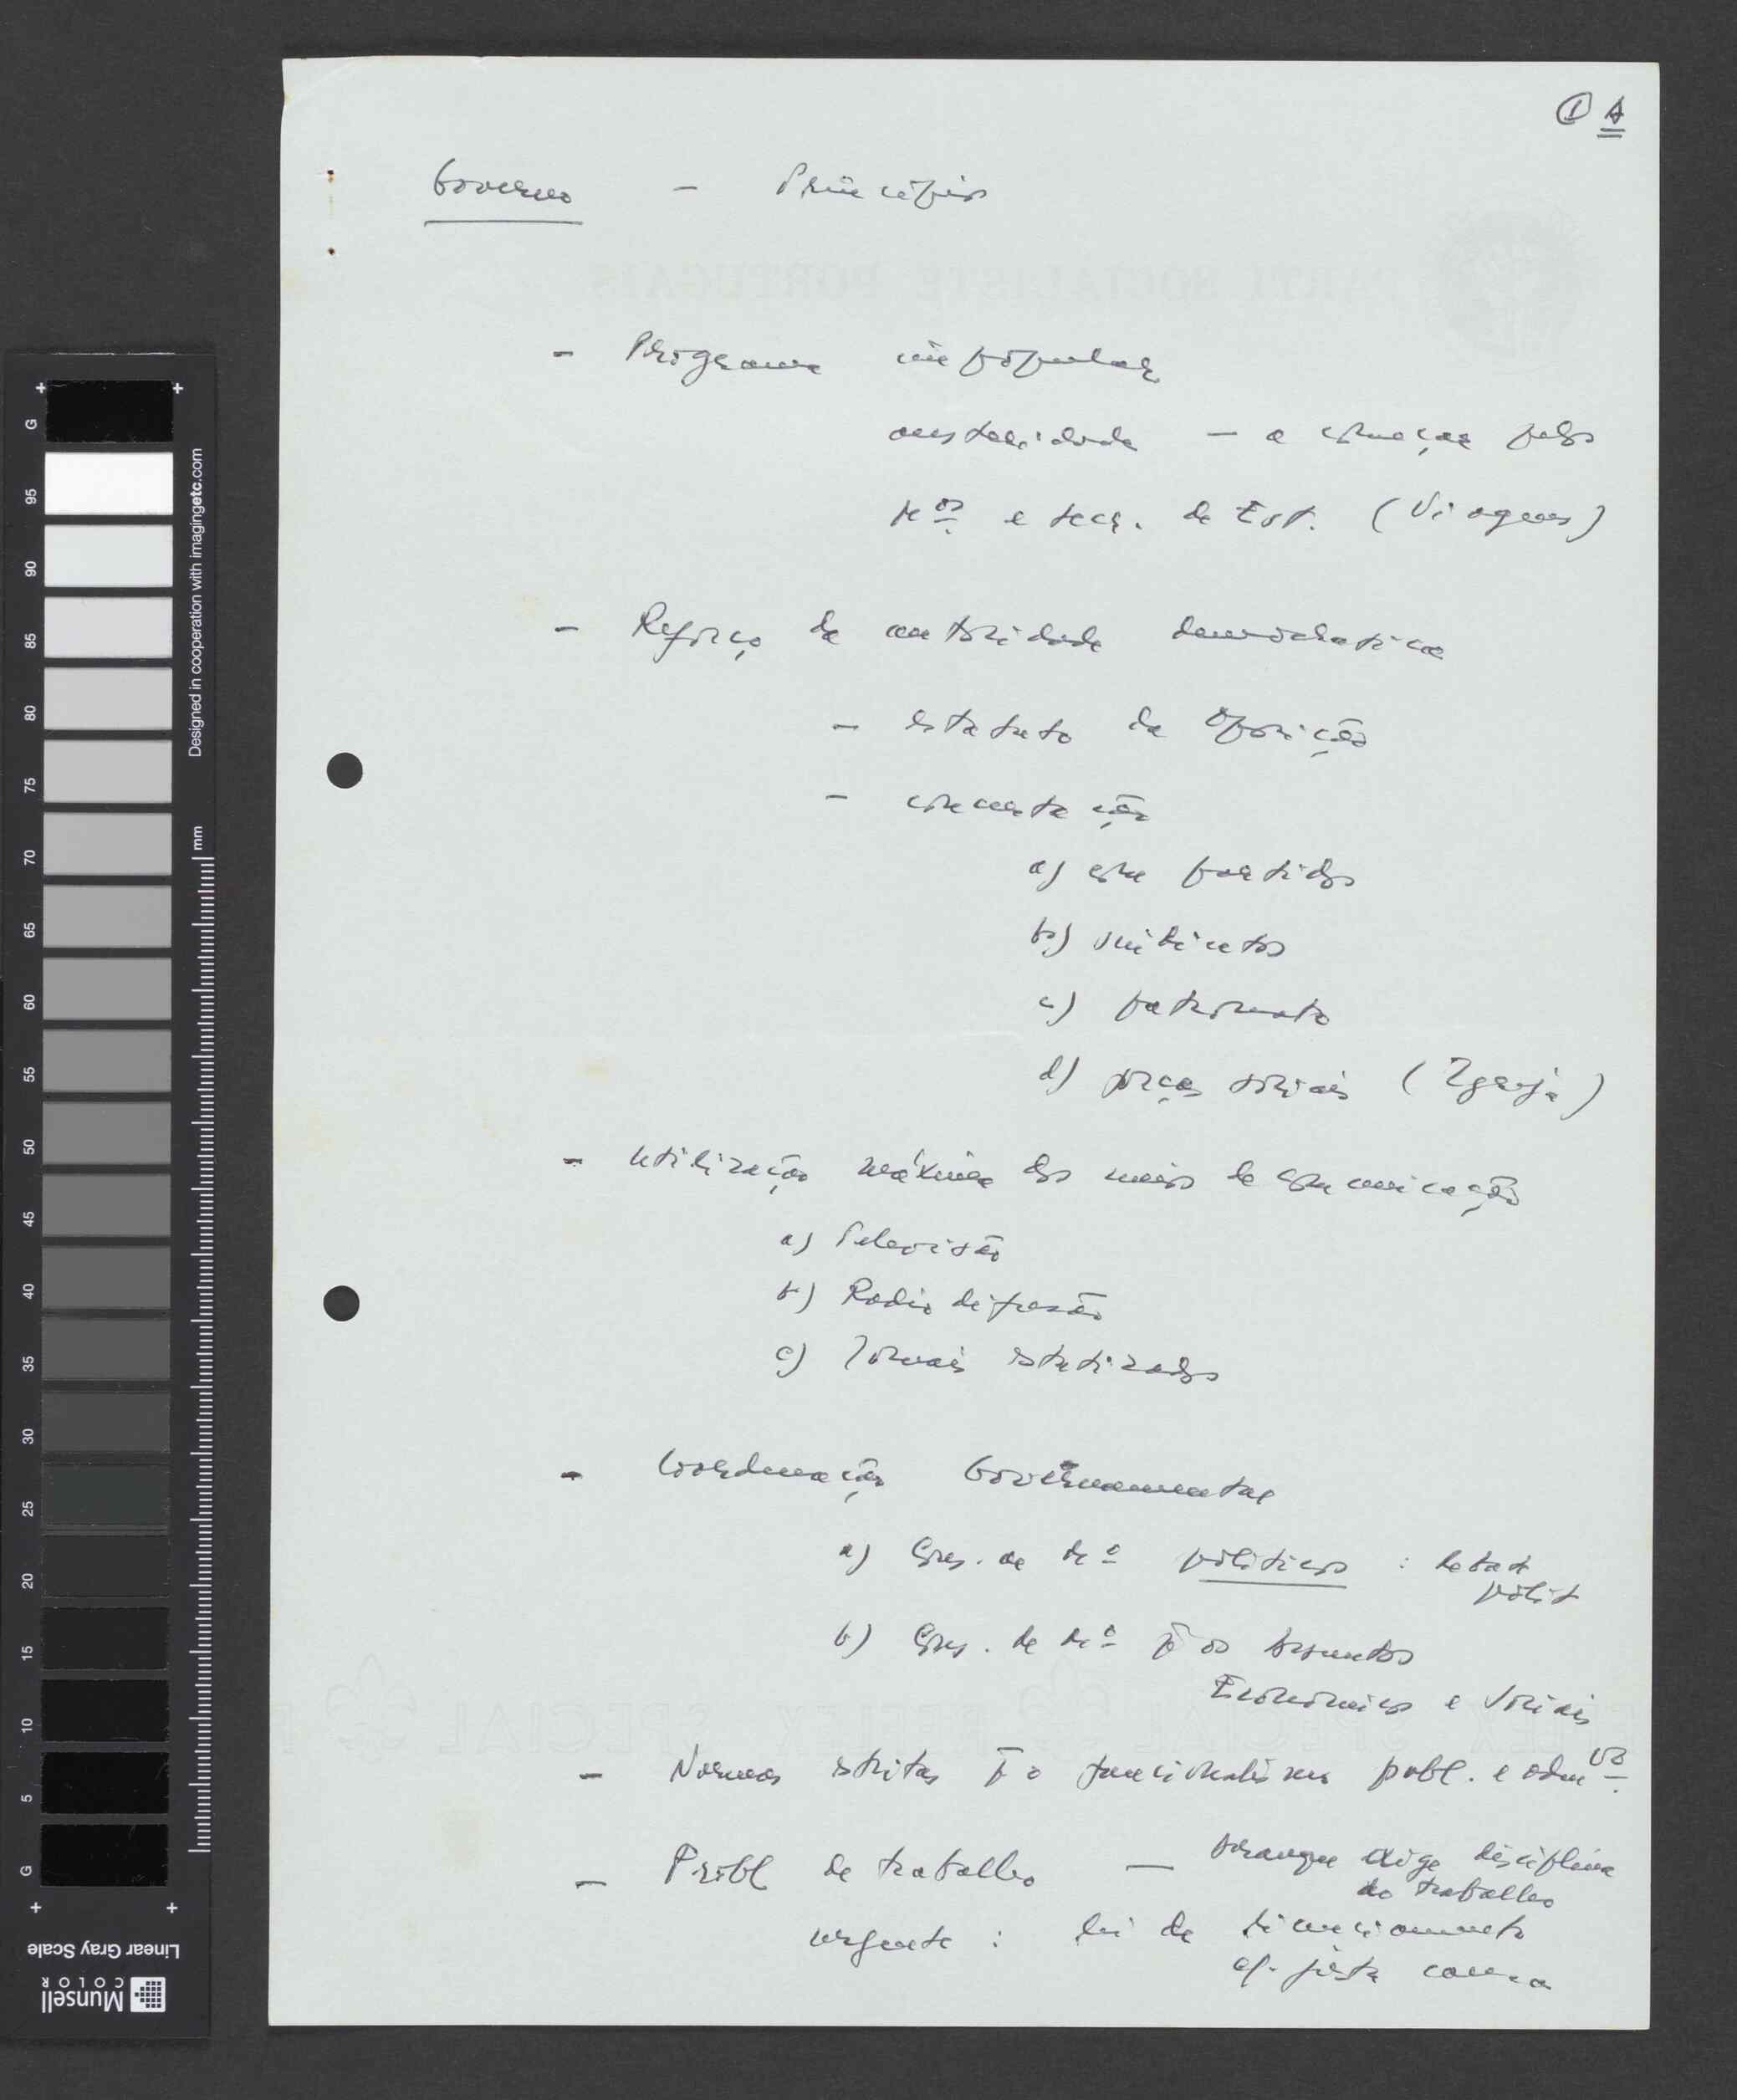 ① A
Governo - Princípios
PARTI SOCIALISTE PORTUGAIS
- Programa impopular
austeridade - a começar pelos
Mos e secr. de Est. (Viagens)
- Reforço da autoridade democrática
- estatuto da oposição
- concertação
a) com partidos
b) sindicatos
c) patronato
d) forças sociais (Igreja)
- Utilização máxima dos meios de comunicação
a) Televisão
b) Rádio difusão
c) Jornais estatizados
- Coordenação Governamental
a) Cons. de Mo políticos : debate
polít
b) Cons. de Mo p os Assuntos
Económicos e Sociais
- Normas estritas p o funcionalismo públ. e admvo
- Probl de trabalho - arranque exige disciplina
do trabalho
urgente : lei de
cf. justa causa
TELEX SPECIAL TELEX SPECIAL
Designed in cooperation with imagingetc.com
mm
G
95
90
85
80
75
70
65
60
55
50
45
40
35
30
25
20
15
10
5
G
Linear Gray Scale
Munsell
COLOR